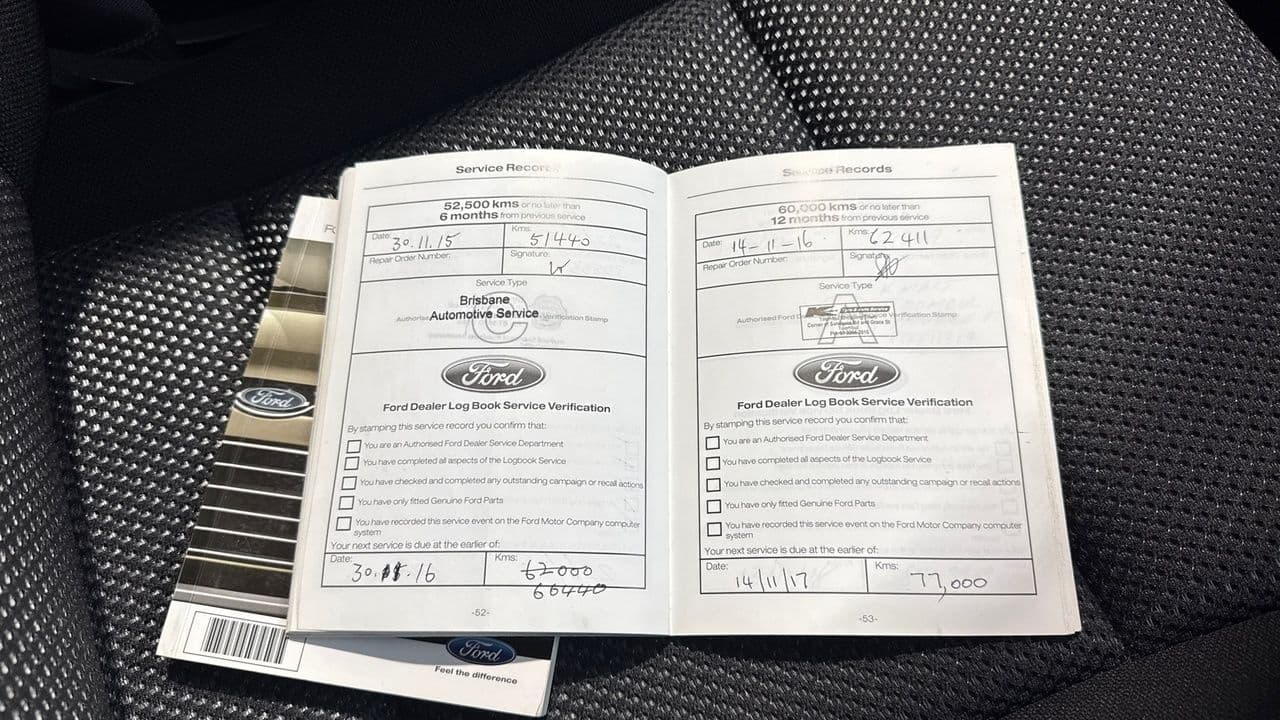 Service Records
52,500 kms or no later than
6 months from previous service
Date: 30.11.15
Kms: 51440
Repair Order Number:
Signature:
Service Type
Brisbane
Automotive Service
Verification Stamp
C
Ford
Ford Dealer Log Book Service Verification
By stamping this service record you confirm that:
You are an Authorised Ford Dealer Service Department
You have completed all aspects of the Logbook Service
You have checked and completed any outstanding campaign or recall actions
You have only fitted Genuine Ford Parts
You have recorded this service event on the Ford Motor Company computer
system
Your next service is due at the earlier of:
Date: 30. .16
Kms: 62000
66440
-52-
Records
60,000 kms or no later than
12 months from previous service
Date: 14-11-16
Kms: 62 411
Repair Order Number:
Signature:
Service Type
A
Authorised Ford
Verification Stamp
Ford
Ford Dealer Log Book Service Verification
By stamping this service record you confirm that:
You are an Authorised Ford Dealer Service Department
You have completed all aspects of the Logbook Service
You have checked and completed any outstanding campaign or recall actions
You have only fitted Genuine Ford Parts
You have recorded this service event on the Ford Motor Company computer
system
Your next service is due at the earlier of:
Date: 14/11/17
Kms: 77,000
-53-
Ford
Ford
Feel the difference